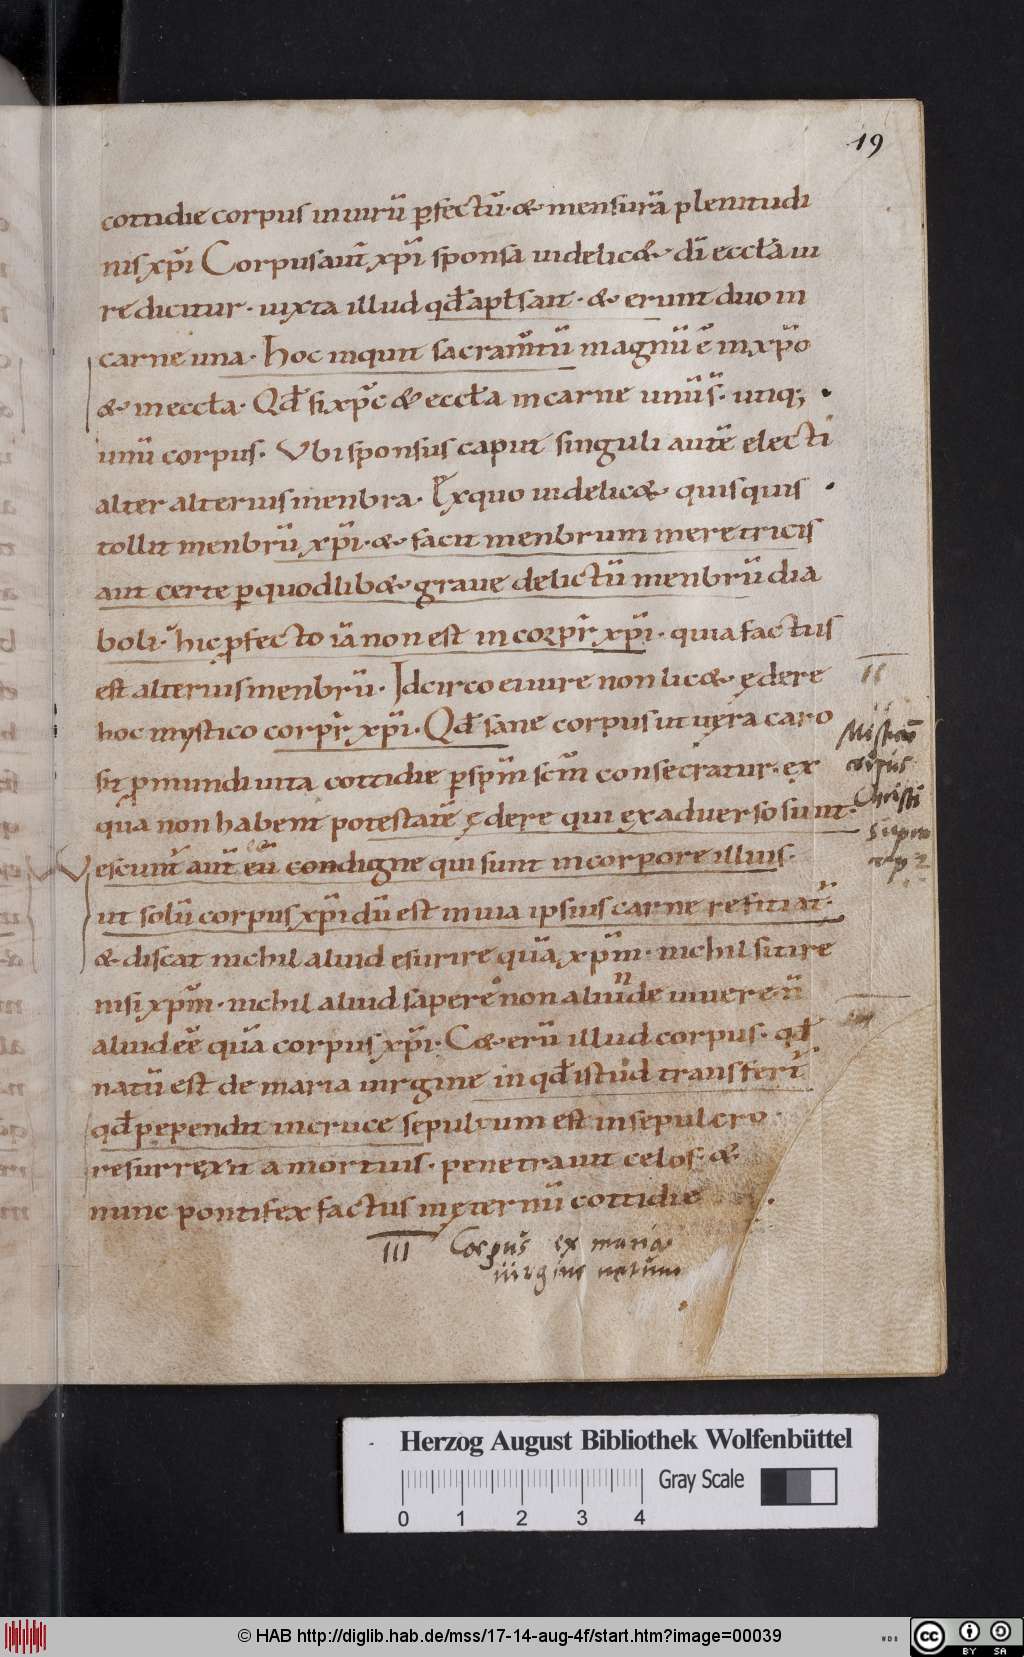 19
cottidie corpus in uirū p̄fectū· & mensurā plenitudi
nis xp̄i Corpus aut̄ xp̄i sponsa uidelic& · dī eccła iu
re dicitur · iuxta illud qđ apłs ait · & erunt duo in
carne una · Hoc inquit sacram̄tū magnū ē in xp̄o
& in eccła · Qđ si xp̄c & eccła in carne unū s̄· utiq;
unū corpus · Vbi sponsus caput singuli autē electi
alter alterius menbra · Ex quo uidelic& · quisquis
tollit menbrū xp̄i· & facit menbrum meretricis
aut certe p quodlib& · graue delictū menbrū dia
boli · hic pfecto iā non est in corpr̄ xp̄i · quia factus
est alterius menbrū · Idcirco ei iure non lic& · ędere
hoc mystico corpr̄ xp̄i · Qđ sane corpus ut uera caro
sit p mundi uita cottidie p sp̄m sc̄m consecratur · ex
qua non habent potestatē ędere qui ex aduerso sunt·
Vescunt̄ aut̄ eū condigne qui sunt in corpore illius·
ut solū corpus xp̄i dū est in uia ipsius carne reficiat̄·
& discat nichil aliud esurire quā xp̄m · nichil sitire
nisi xp̄m · nichil aliud sapere non aliunde uiuere n̄
aliud eē quā corpus xp̄i· C&erū illud corpus · qđ
natū est de maria uirgine in qđ istud transfert̄
qđ pependit in cruce sepultum est in sepulcro·
resurrexit a mortuis · penetrauit celos · &
nunc pontifex factus in ęternū cottidie
II
Misticū
corpus
Christi
III Corpus ex maria
uirgine natum
Herzog August Bibliothek Wolfenbüttel
Gray Scale
0 1 2 3 4
© HAB http://diglib.hab.de/mss/17-14-aug-4f/start.htm?image=00039
WDB
cc
BY SA